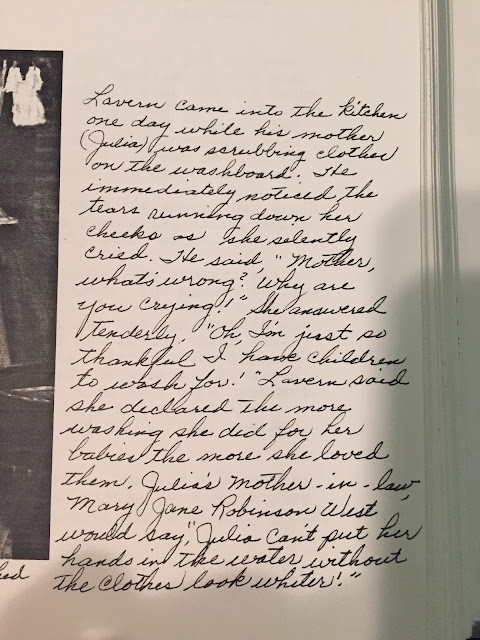 Lavern came into the kitchen
one day while his mother
(Julia) was scrubbing clothes
on the washboard. He
immediately noticed the
tears running down her
cheeks as she selently
cried. He said, "Mother,
what's wrong? Why are
you crying!" She answered
tenderly, "Oh, I'm just so
thankful I have children
to wash for!" Lavern said
she declared the more
washing she did for her
babies the more she loved
them. Julia's mother-in-law,
Mary Jane Robinson West
would say, "Julia can't put her
hands in the water without
the clothes look whiter!"